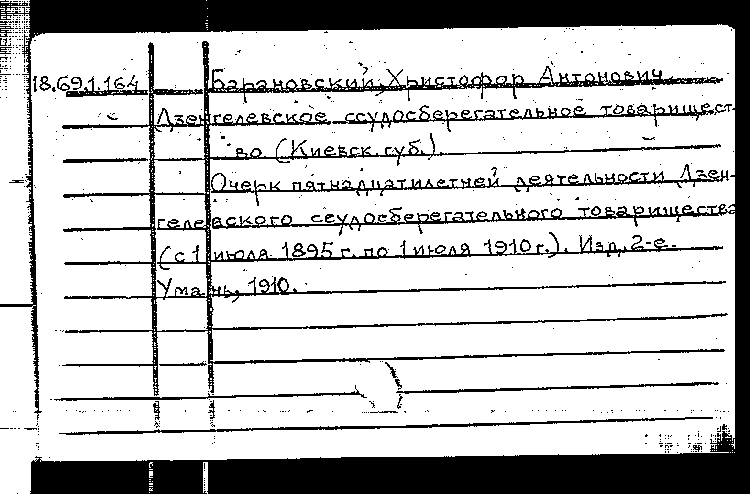 18.69.1.164 Барановский, Христофор Антонович
Дзенгелевское ссудосберегательное товарищест-
во (Киевск. губ.).
Очерк пятнадцатилетней деятельности Дзен-
гелевского ссудосберегательного товарищества
(с 1 июля 1895 г. по 1 июля 1910 г.). Изд. 2-е.
Умань, 1910.